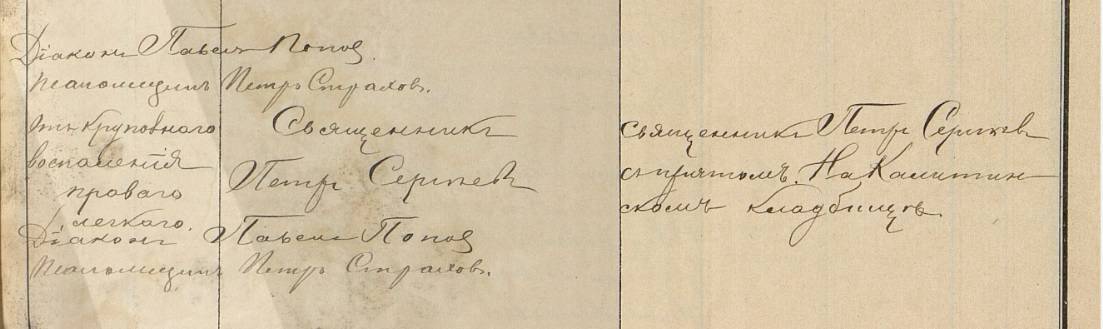 Діаконъ Павелъ Поповъ
Псаломщикъ Петръ Страховъ.
отъ крупознаго
воспаленія
праваго
легкаго.
Священникъ
Петръ Сергіевъ
Священникъ Петръ Сергіевъ
съ причтомъ. На Калитин
скомъ кладбищѣ.
Діаконъ Павелъ Поповъ
Псаломщикъ Петръ Страховъ.